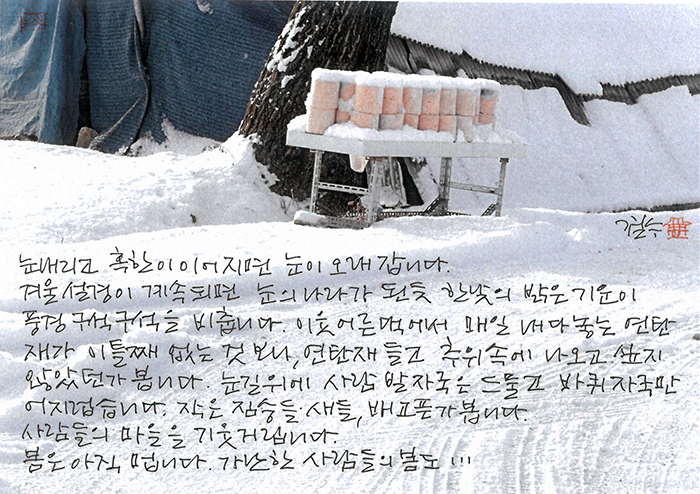 철수
눈내리고 혹한이 이어지면 눈이 오래 갑니다.
겨울 설경이 계속되면 눈의나라가 된듯 한낮의 밝은 기운이
풍경 구석구석을 비춥니다. 이웃어른댁에서 매일 내다놓는 연탄
재가 이틀째 없는 것 보니, 연탄재 들고 추위속에 나오고 싶지
않았던가 봅니다. 눈길위에 사람 발자국은 드물고 바퀴자국만
어지럽습니다. 작은 짐승들·새들, 배고픈가봅니다.
사람들의 마을을 기웃거립니다.
봄은 아직 멉니다. 가난한 사람들의 봄도!!!